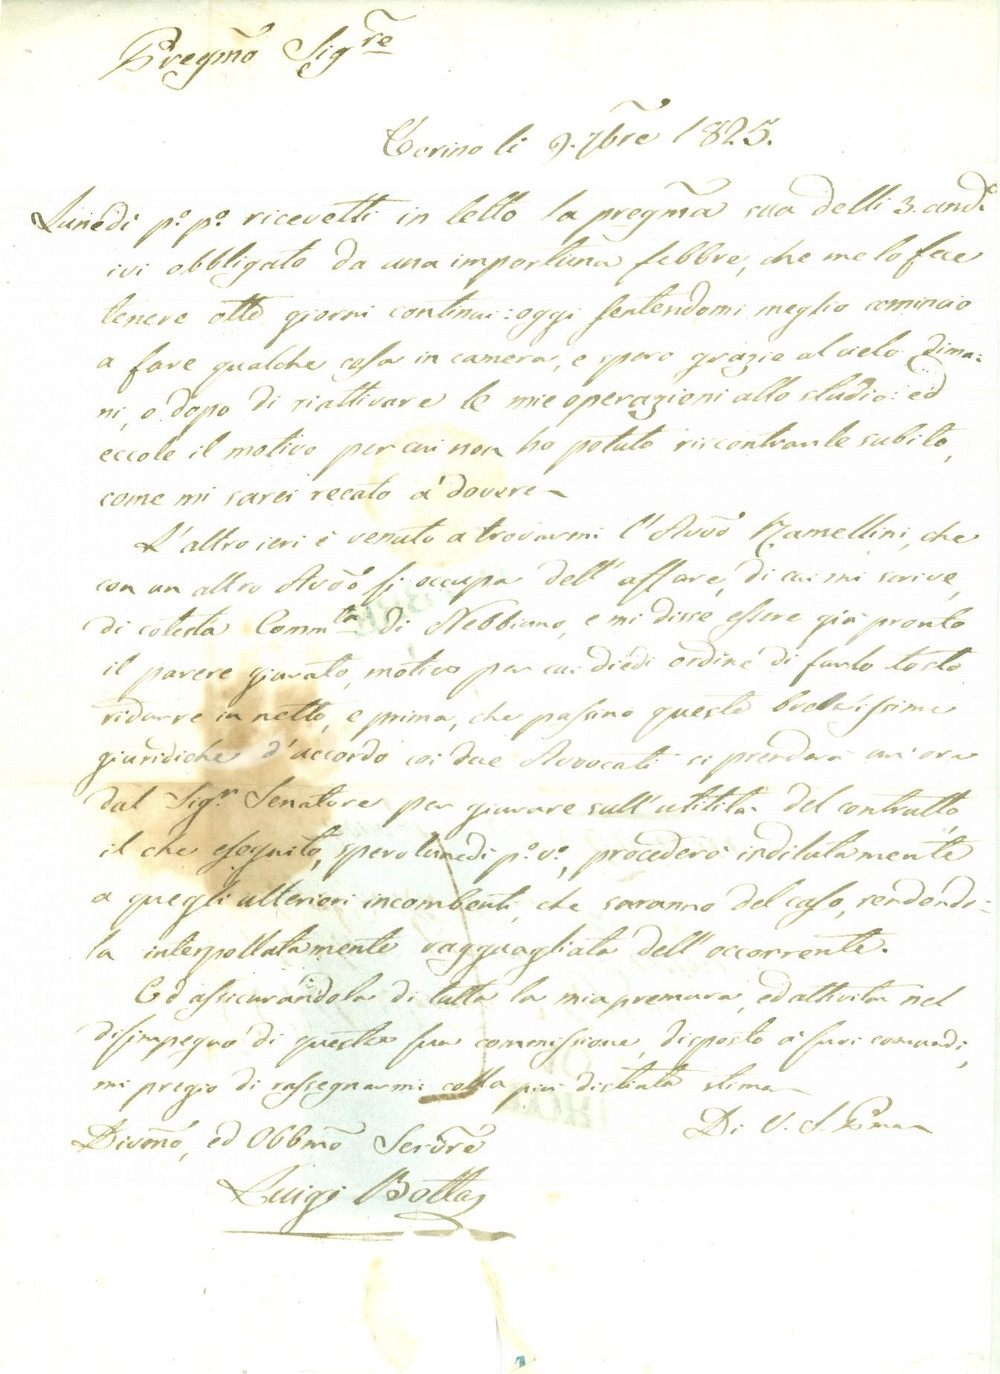 Pregmo Sigre
Torino li 9. 7bre 1825.
Lunedi p.° p.° ricevetti in letto la pregma sua delli 3. andte
ivi obbligato da una importuna febbre, che me lo fece
tenere otto giorni continui: oggi sentendomi meglio comincio
a fare qualche cosa in camera, e spero grazie al cielo dima=
ni, o dopo di riattivare le mie operazioni allo studio: ed
eccole il motivo per cui non ho potuto riscontrarle subito,
come mi sarei recato a' dovere
L'altro ieri è venuto a trovarmi l'Avvo Ramellini, che
con un altro Avvo si occupa dell'affare, di cui mi scrive,
di cotesta Commtà di Nebbiuno, e mi disse essere già pronto
il parere giurato, motivo per cui diedi ordine di farlo tosto
ridurre in netto, e prima, che passino queste brevissime
giuridiche d'accordo coi due Avvocati si prenderà un'ora
dal Sigr Senatore per giurare sull'utilità del contratto
il che eseguito, spero lunedi p.° v.°, procederò indilatamente
a quegli ulteriori incombenti, che saranno del caso, rendendo=
la interpollatamente ragguagliata dell'occorrente.
Ed assicurandola di tutta la mia premura, ed attività nel
disimpegno di questa sua commissione, disposto a' suoi comandi,
mi pregio di rassegnarmi colla più distinta stima
Di V. S. Pma
Divomo, ed Obbmo Servre
Luigi Botta